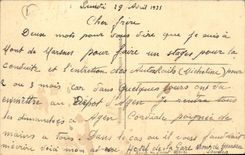 Lundi 29 Avril 1935
Cher frère
Deux mots pour vous dire que je suis à
Mont de Marsan pour faire un stage pour la
conduite et l'entretien des Autorails (Micheline) pour
2 ou 3 mois car dans quelques jours ont va
en mettre au Dépot d'Agen je rentre tous
les dimanches à Agen Cordiale poignée de
mains a tous Dans le cas ou il vous faudrait
écrire mon Hotel de la Gare Mont de Marsan